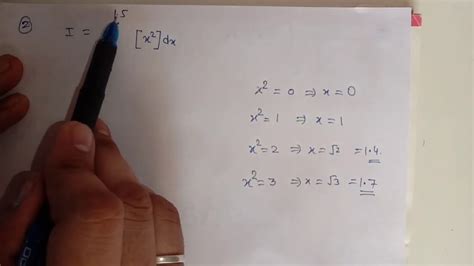 ② I = 1.5 [x²] dx
x² = 0 ⇒ x = 0
x² = 1 ⇒ x = 1
x² = 2 ⇒ x = √2 = 1.4
x² = 3 ⇒ x = √3 = 1.7